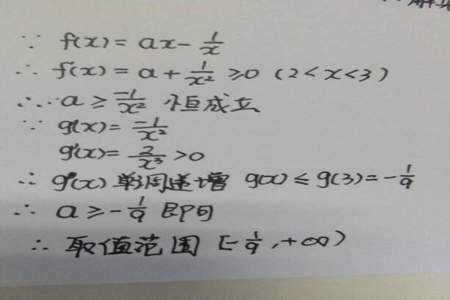 ∵ f(x) = ax - 1/x
∴ f'(x) = a + 1/x² ≥0 (2<x<3)
∴ a ≥ -1/x² 恒成立
∵ g(x) = -1/x²
g'(x) = 2/x³ >0
∴ g(x) 单调递增 g(x) ≤ g(3) = -1/9
∴ a ≥ -1/9 即可
∴ 取值范围 [-1/9, +∞)